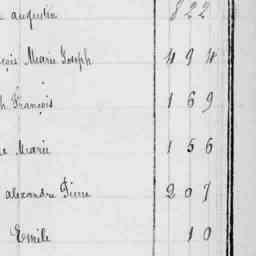 augustin 822
Marie Joseph 494
h François 169
Marie 156
alexandre Pierre 207
Emile 10